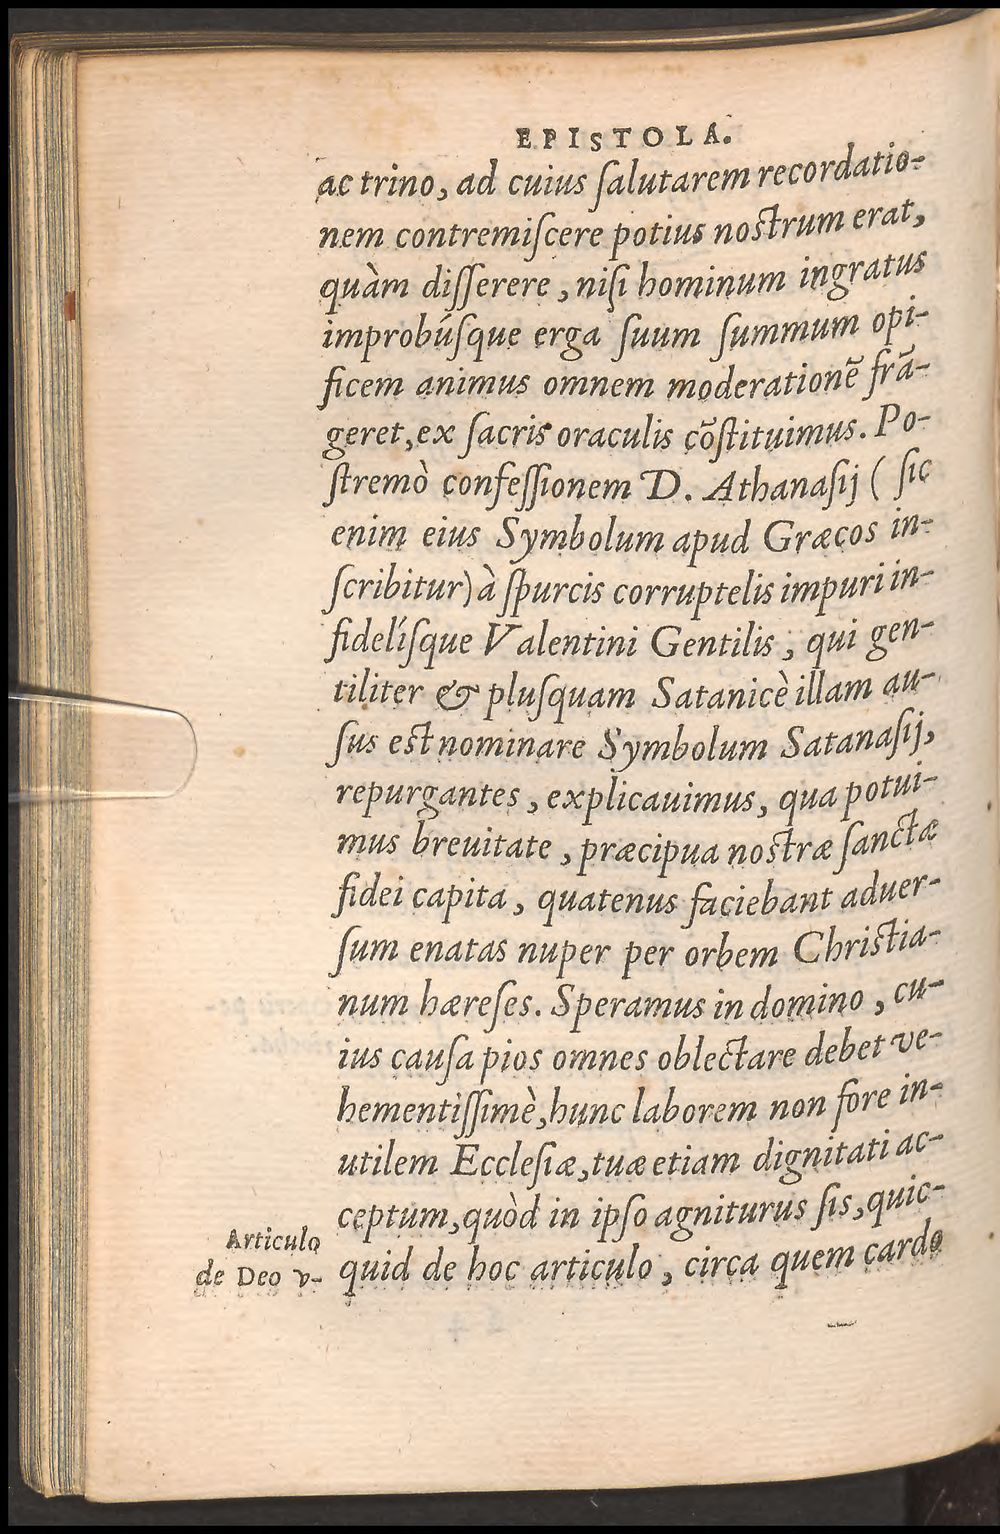 EPISTOLA.
ac trino, ad cuius ſalutarem recordatio-
nem contremiſcere potius noſtrum erat,
quàm diſſerere, niſi hominum ingratus
improbúſque erga ſuum ſummum opi-
ficem animus omnem moderationē frā-
geret, ex ſacris oraculis cōſtituimus. Po-
ſtremò confeſſionem D. Athanaſij (ſic
enim eius Symbolum apud Græcos in-
ſcribitur) à ſpurcis corruptelis impuri in-
fidelíſque Valentini Gentilis, qui gen-
tiliter & pluſquam Satanicè illam au-
ſus eſt nominare Symbolum Satanaſij,
repurgantes, explicauimus, qua potui-
mus breuitate, præcipua noſtræ ſanctæ
fidei capita, quatenus faciebant aduer-
ſum enatas nuper per orbem Chriſtia-
num hæreſes. Speramus in domino, cu-
ius cauſa pios omnes oblectare debet ve-
hementiſſimè, hunc laborem non fore in-
utilem Eccleſiæ, tuæ etiam dignitati ac-
ceptum, quòd in ipſo agniturus ſis, quic-
quid de hoc articulo, circa quem cardo
Articulo
de Deo v-